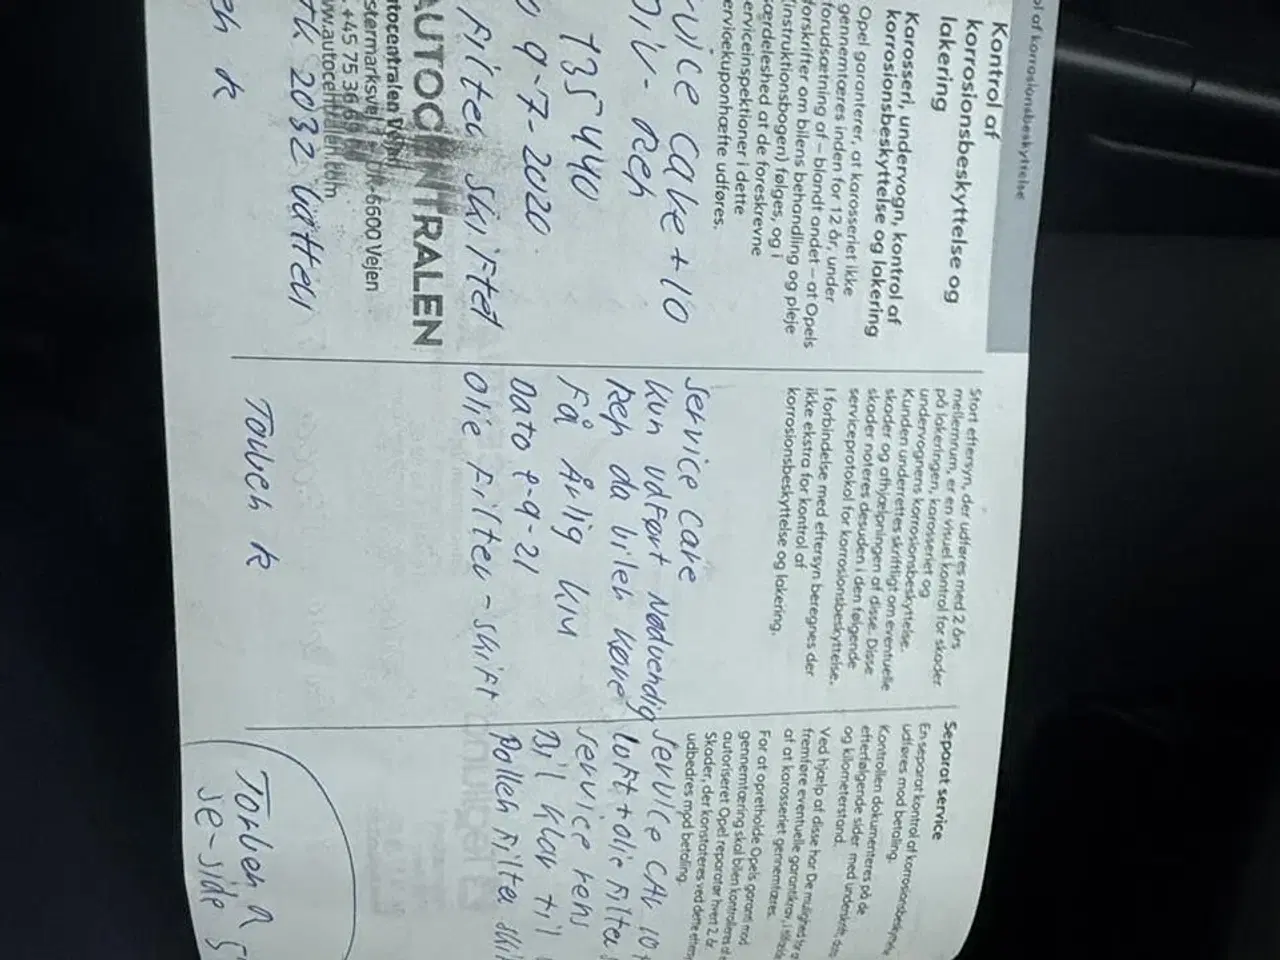 ol af korrosionsbeskyttelse
Kontrol af
korrosionsbeskyttelse og
lakering
Karosseri, undervogn, kontrol af
korrosionsbeskyttelse og lakering
Opel garanterer, at karosseriet ikke
gennemtæres inden for 12 år, under
forudsætning af – blandt andet – at Opels
forskrifter om bilens behandling og pleje
(instruktionsbogen) følges, og i
særdeleshed at de foreskrevne
serviceinspektioner i dette
servicekuponhæfte udføres.
rvice cake + 10
Div - Reh
135440
9-7-2020
Filter skiftet
AUTOC NTRALEN
tocentralen Vejen
stermarksvej DK-6600 Vejen
+45 75 36
www.autocentralen.com
2032 batteri
eh k
Stort eftersyn, der udføres med 2 års
mellemrum, er en visuel kontrol for skader
på lakeringen, karosseriet og
undervognens korrosionsbeskyttelse.
Kunden underrettes skriftligt om eventuelle
skader og afhjælpningen af disse. Disse
skader noteres desuden i den følgende
serviceprotokol for korrosionsbeskyttelse.
I forbindelse med eftersyn beregnes der
ikke ekstra for kontrol af
korrosionsbeskyttelse og lakering.
Service Care
Kun udført Nødvendig
Rep da bilen køre
Få Årlig km
Dato 8-9-21
Olie Filter - skift
Torben k
Separat service
En separat kontrol af korrosionsbeskyttelse
udføres mod betaling.
Kontrollen dokumenteres på de
efterfølgende sider med underskrift, dato
og kilometerstand.
Ved hjælp af disse har De mulighed for at
fremføre eventuelle garantikrav, i tilfælde
af at karosseriet gennemtæres.
For at opretholde Opels garanti mod
gennemtæring skal bilen kontrolleres af en
autoriseret Opel reparatør hvert 2. år.
Skader, der konstateres ved dette eftersyn,
udbedres mod betaling.
Service CAr 10+
luft + olie Filter
Service rens
Bil klar til
Pollen Filter skif
Torben k
se-side